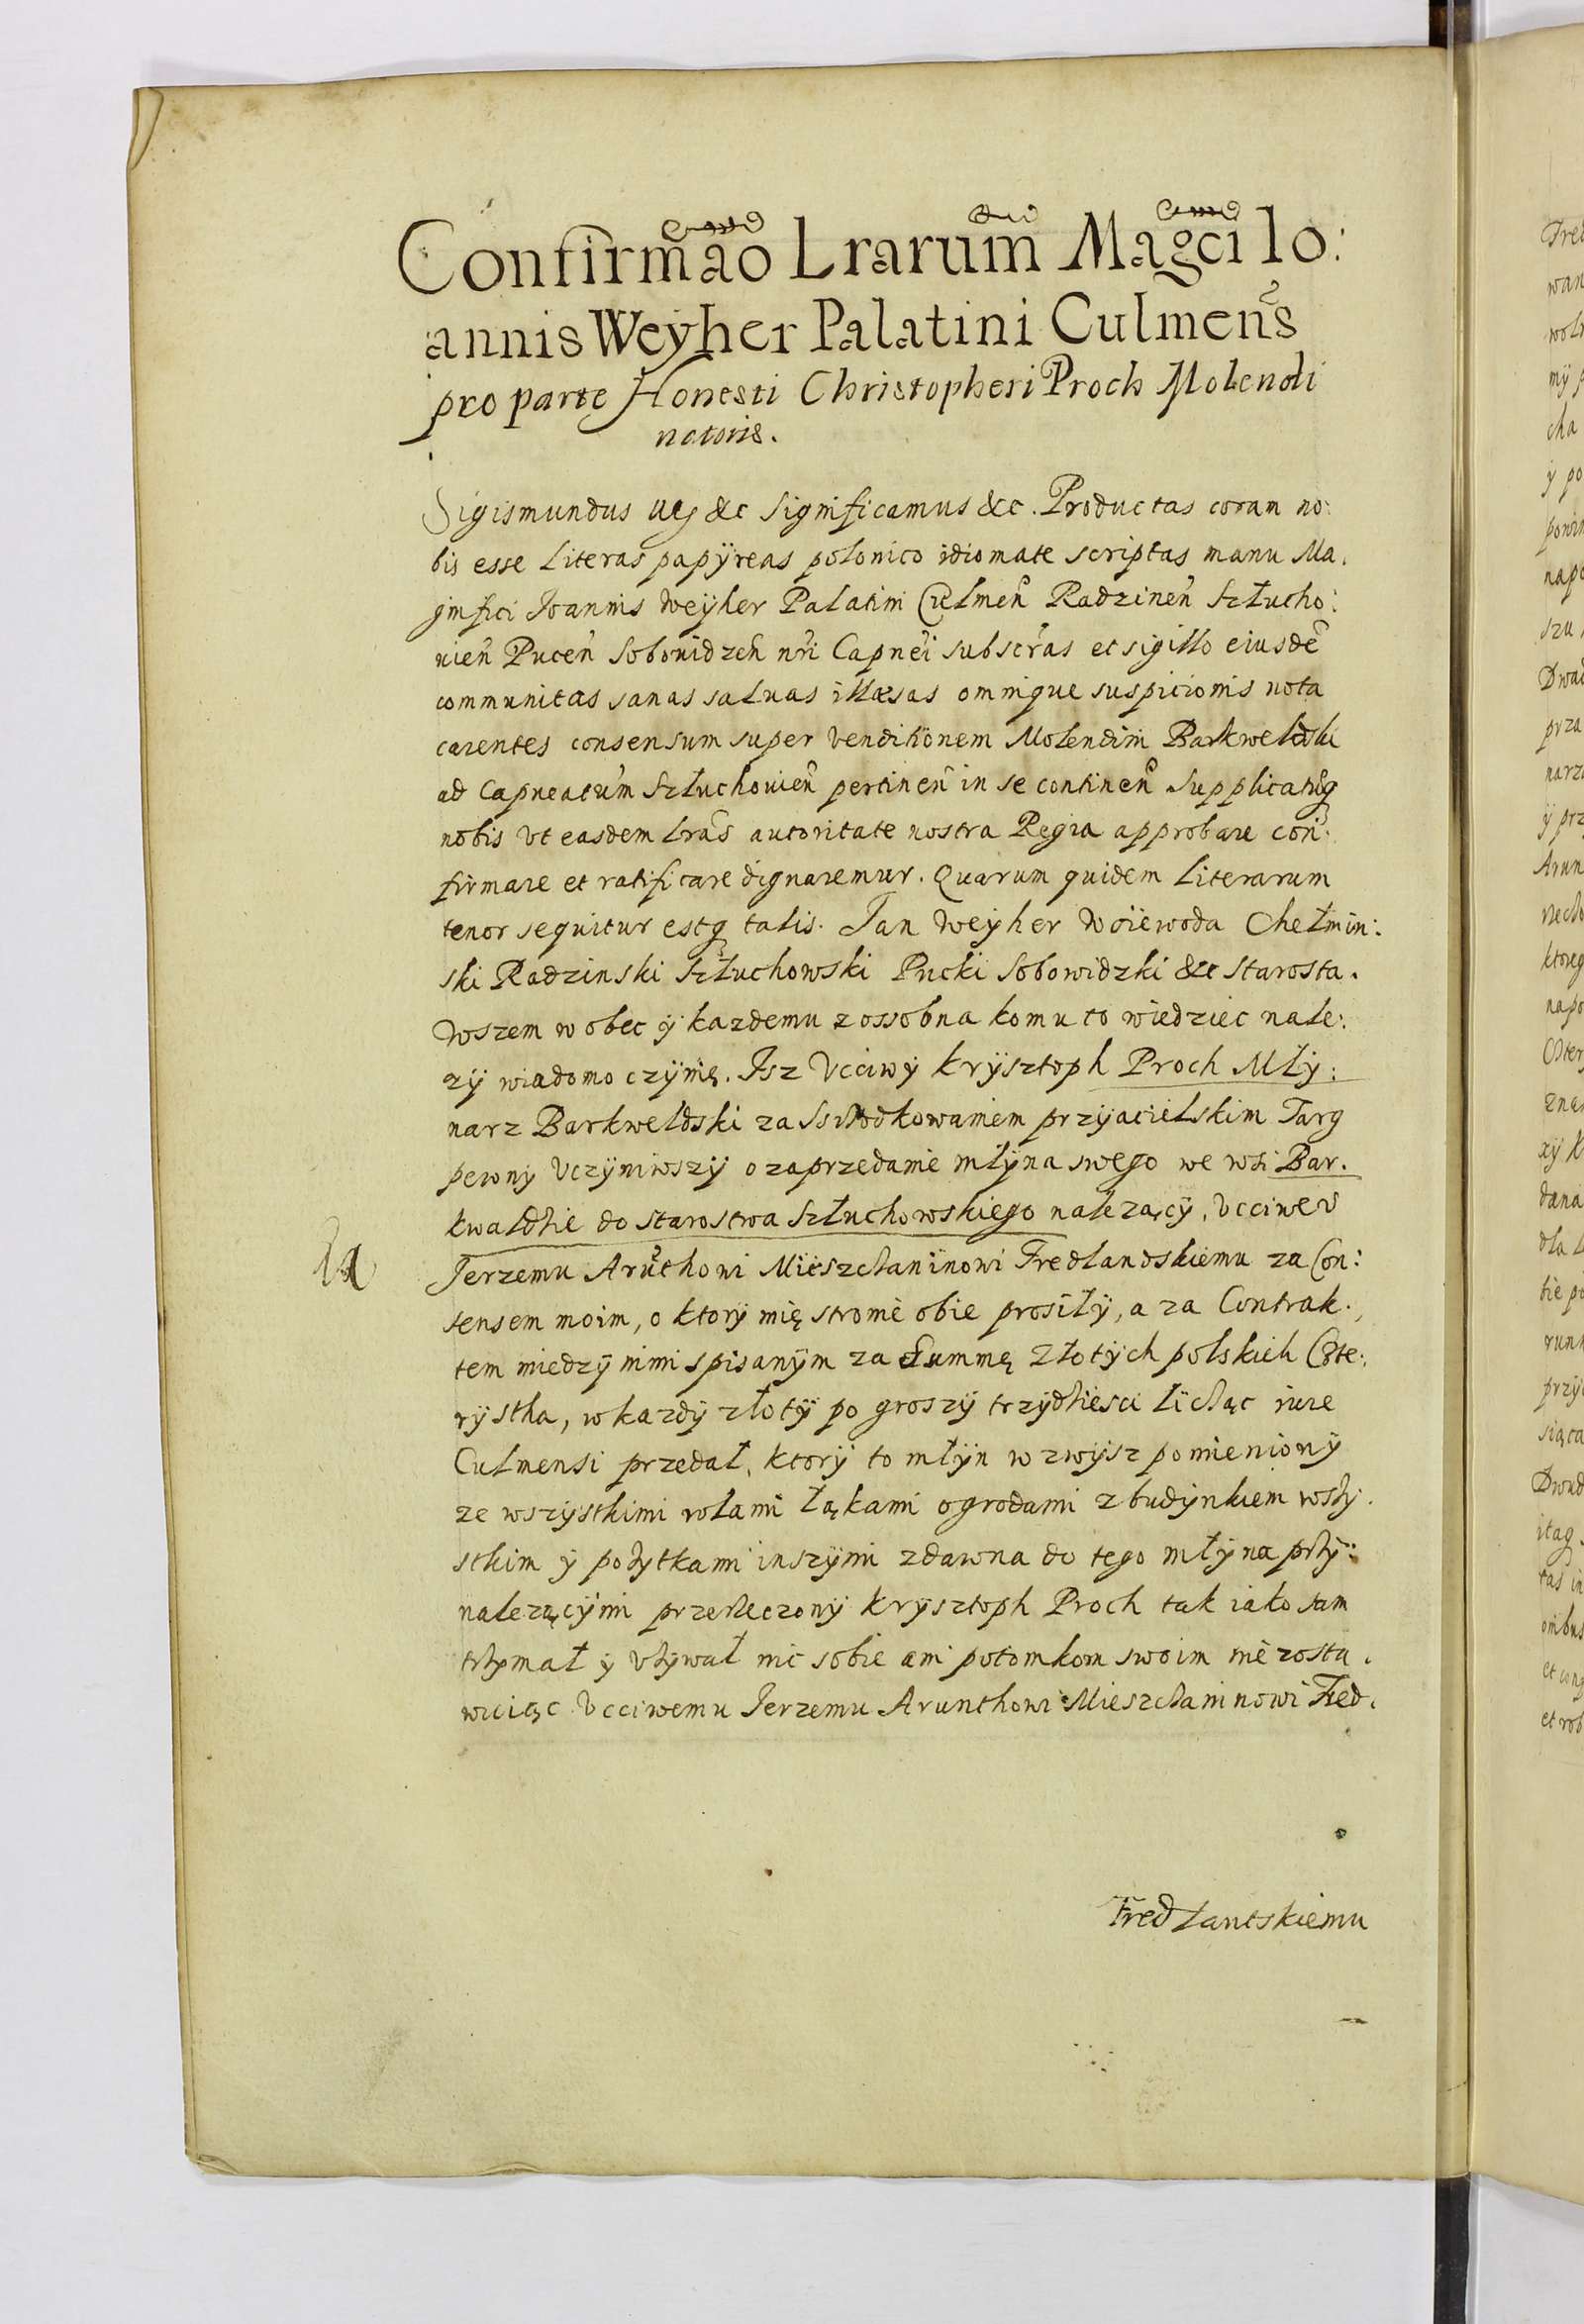 Confirmão Lrarum̃ Mãgci Io:
annis Weÿher Palatini Culmens̃
pro parte Honesti Christopheri Proch Molendi
natoris.
Sigismundus &c Significamus &c. Productas coram no:
bis esse Literas papÿreas polonico idiomate scriptas manu Ma.
gnifici Joannis Weÿher Palatini Culmeñ Radzineñ Szłucho:
uieñ Puceñ Sobouidzeñ nr̃i Capnei subscr̃as et sigillo eiusdẽ
communitas sanas saluas illæsas omnique suspicionis nota
carentes consensum super venditionem Molendini Barkweldski
ad Capneatum Szłuchouieñ pertineñ in se contineñ Supplicatũq
nobis vt easdem Lrãs autoritate nostra Regia approbare con:
firmare et ratificare dignaremur. Quarum quidem Literarum
tenor sequitur estq talis. Jan Weÿher Woiewoda Chełmin:
ski Radzinski Szłuchowski Pucki Sobowidzki &c Starosta.
Wszem wobec ÿ kazdemu zossobna komu to wiedziec nale:
zÿ wiadomo czÿnię. Isz Vcciwÿ Krÿsztoph Proch Młÿ:
narz Barkweldski za Ssrzodkowaniem przÿacielskim Targ
pewnÿ vczÿniwszÿ o zaprzedanie młÿna swego we wsi Bar.
kwaldzie do starostwa Szłuchowskiego nalezącÿ, Vcciwe v
Jerzemu Arũthowi Mieszczaninowi Fredlandskiemu za Con:
sensem moim, o ktorÿ mię stronie obie prosiłÿ, a za Contrak.
tem miedzÿ nimi spisanÿm za Summę Złotÿch polskich Czte:
rÿstha, w kazdÿ złotÿ po groszÿ trzÿdziesci liczłąc iure
Culmensi przedał, ktorÿ to młÿn wzwÿsz pomienionÿ
ze wszÿstkimi rolami łąkami ogrodami z budÿnkiem wszÿ.
stkim ÿ pożÿtkami inszÿmi zdawna do tego młÿna przÿ:
nalezącÿmi przerzeczonÿ Krÿsztoph Proch tak iako sam
trzÿmał ÿ vżÿwał nic sobie ani potomkom swoim nie zosta.
wuiąc Vcciwemu Jerzemu Arunthowi Mieszczaninowi Fred.
Fredlantskiemu